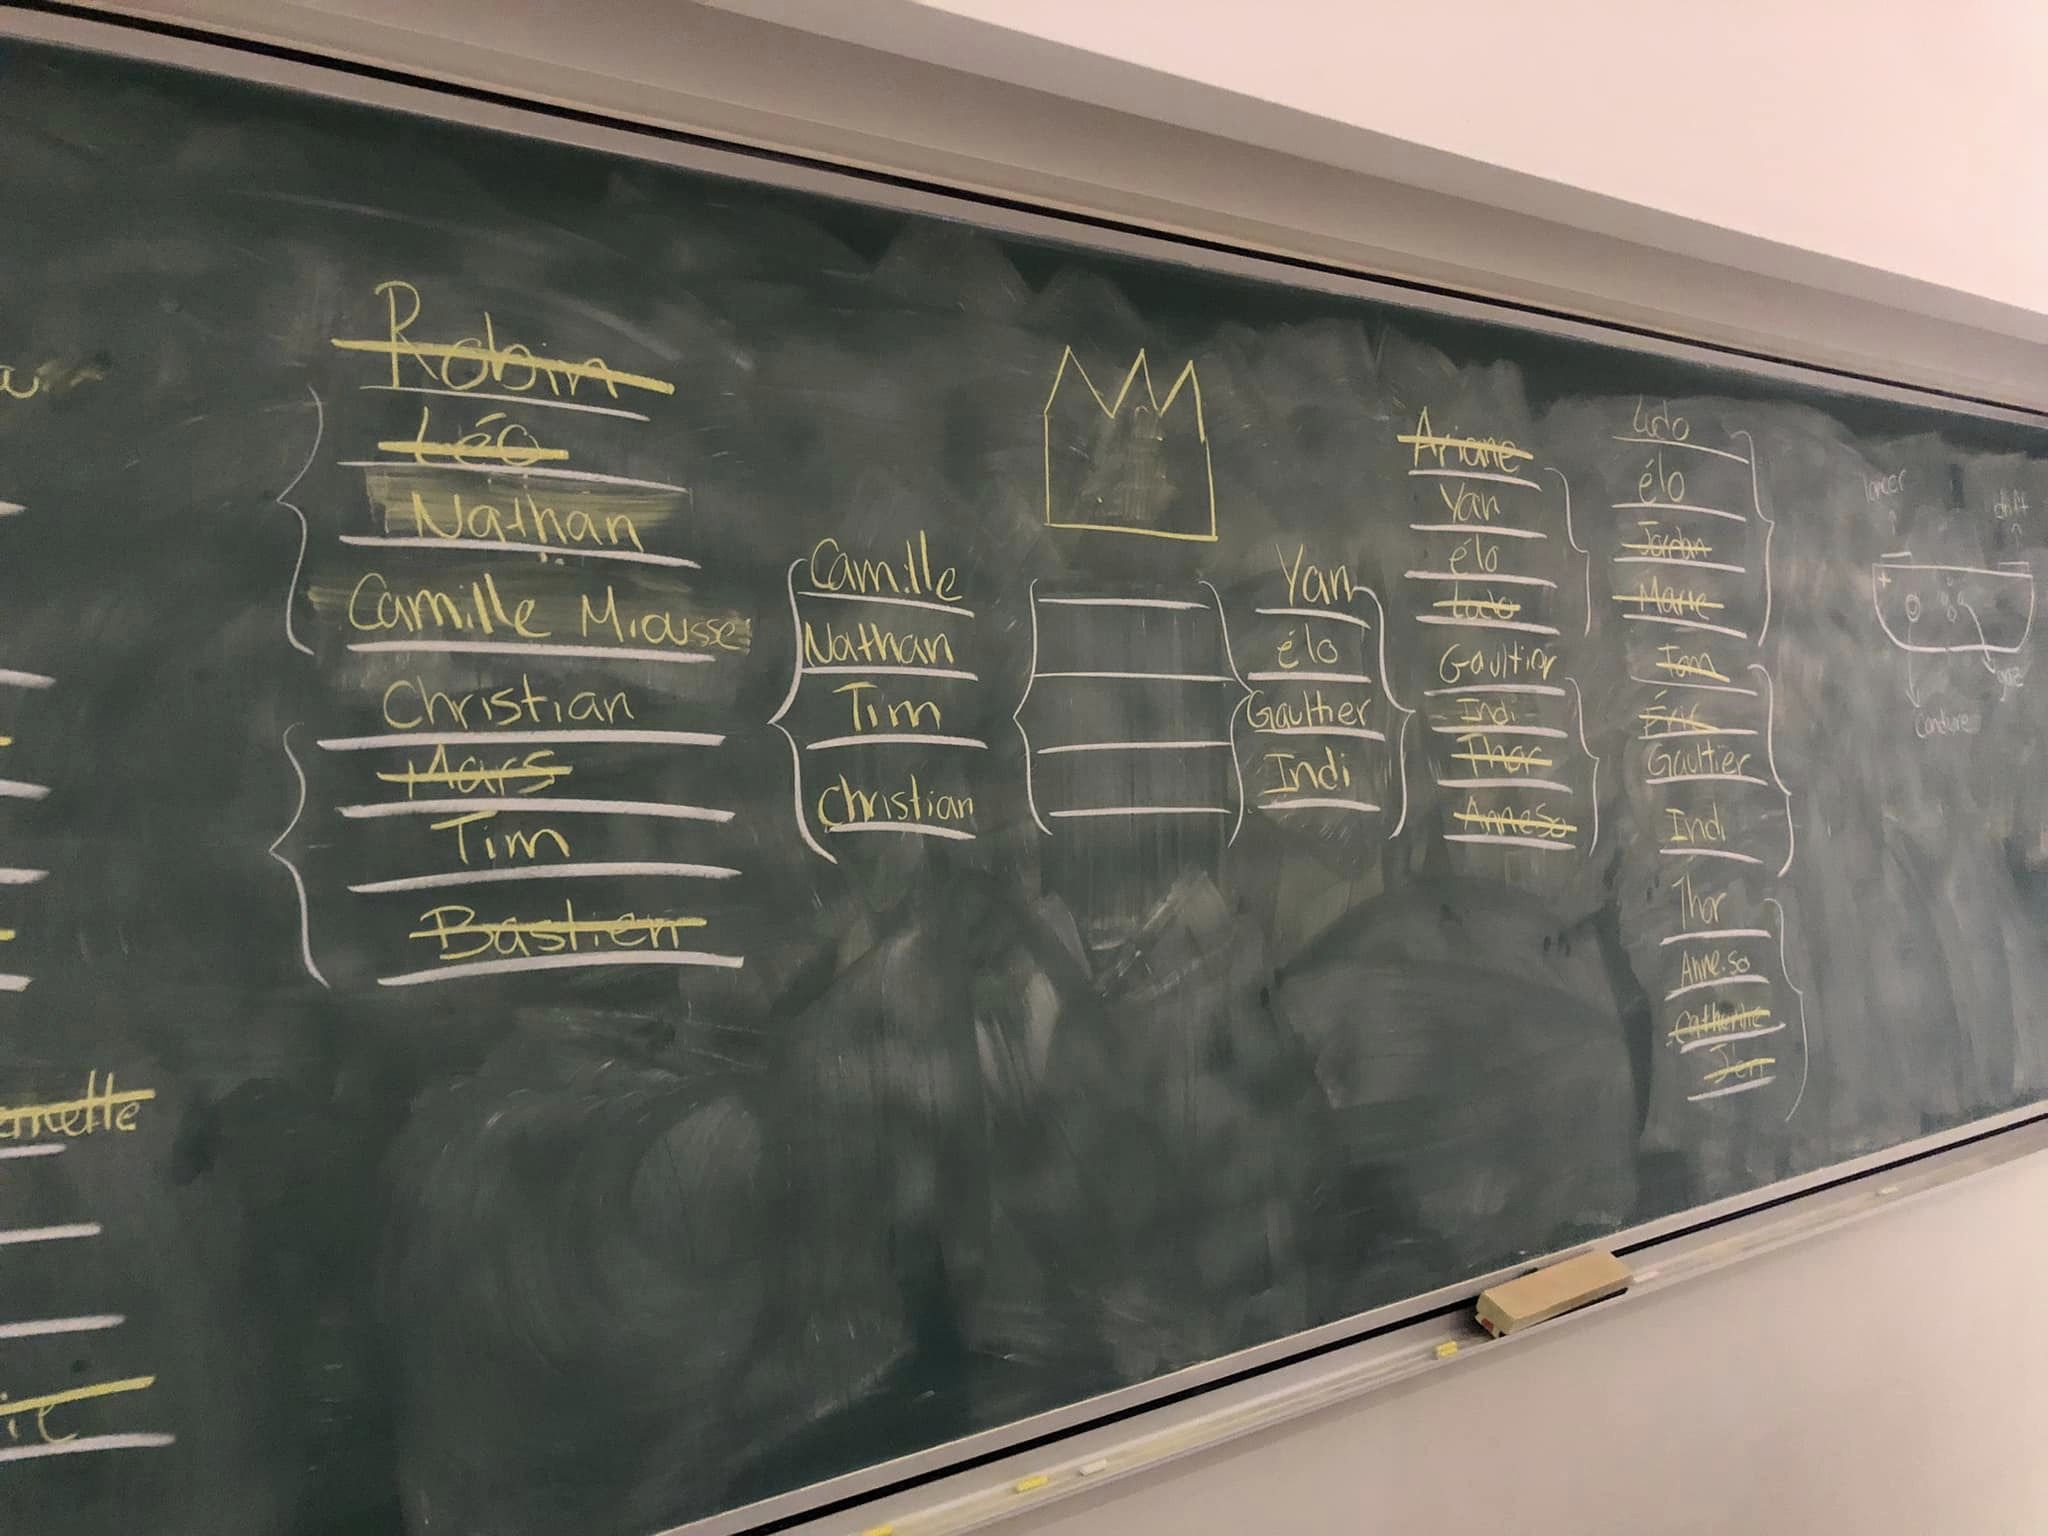 Robin
Léo
Nathan
Camille Miousse
Christian
Mars
Tim
Bastien
Camille
Nathan
Tim
Christian
Yan
élo
Gaultier
Indi
Ariane
Yan
élo
Ludo
Gaultier
Indi
Thor
Anneso
Ludo
élo
Jordan
Marie
Tom
Éric
Gaultier
Indi
Thor
Anne.so
Catherine
Jen
lancer
drift
gaz
Conduire